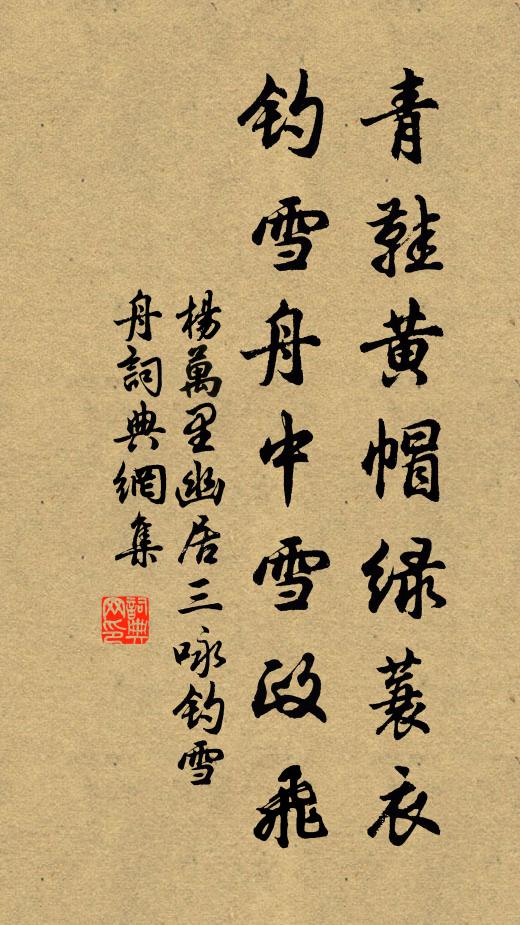 青鞵黄帽緑蓑衣
钓雪舟中雪政飛
楊萬里幽居三咏钓雪
舟詞典網集
詞典网印